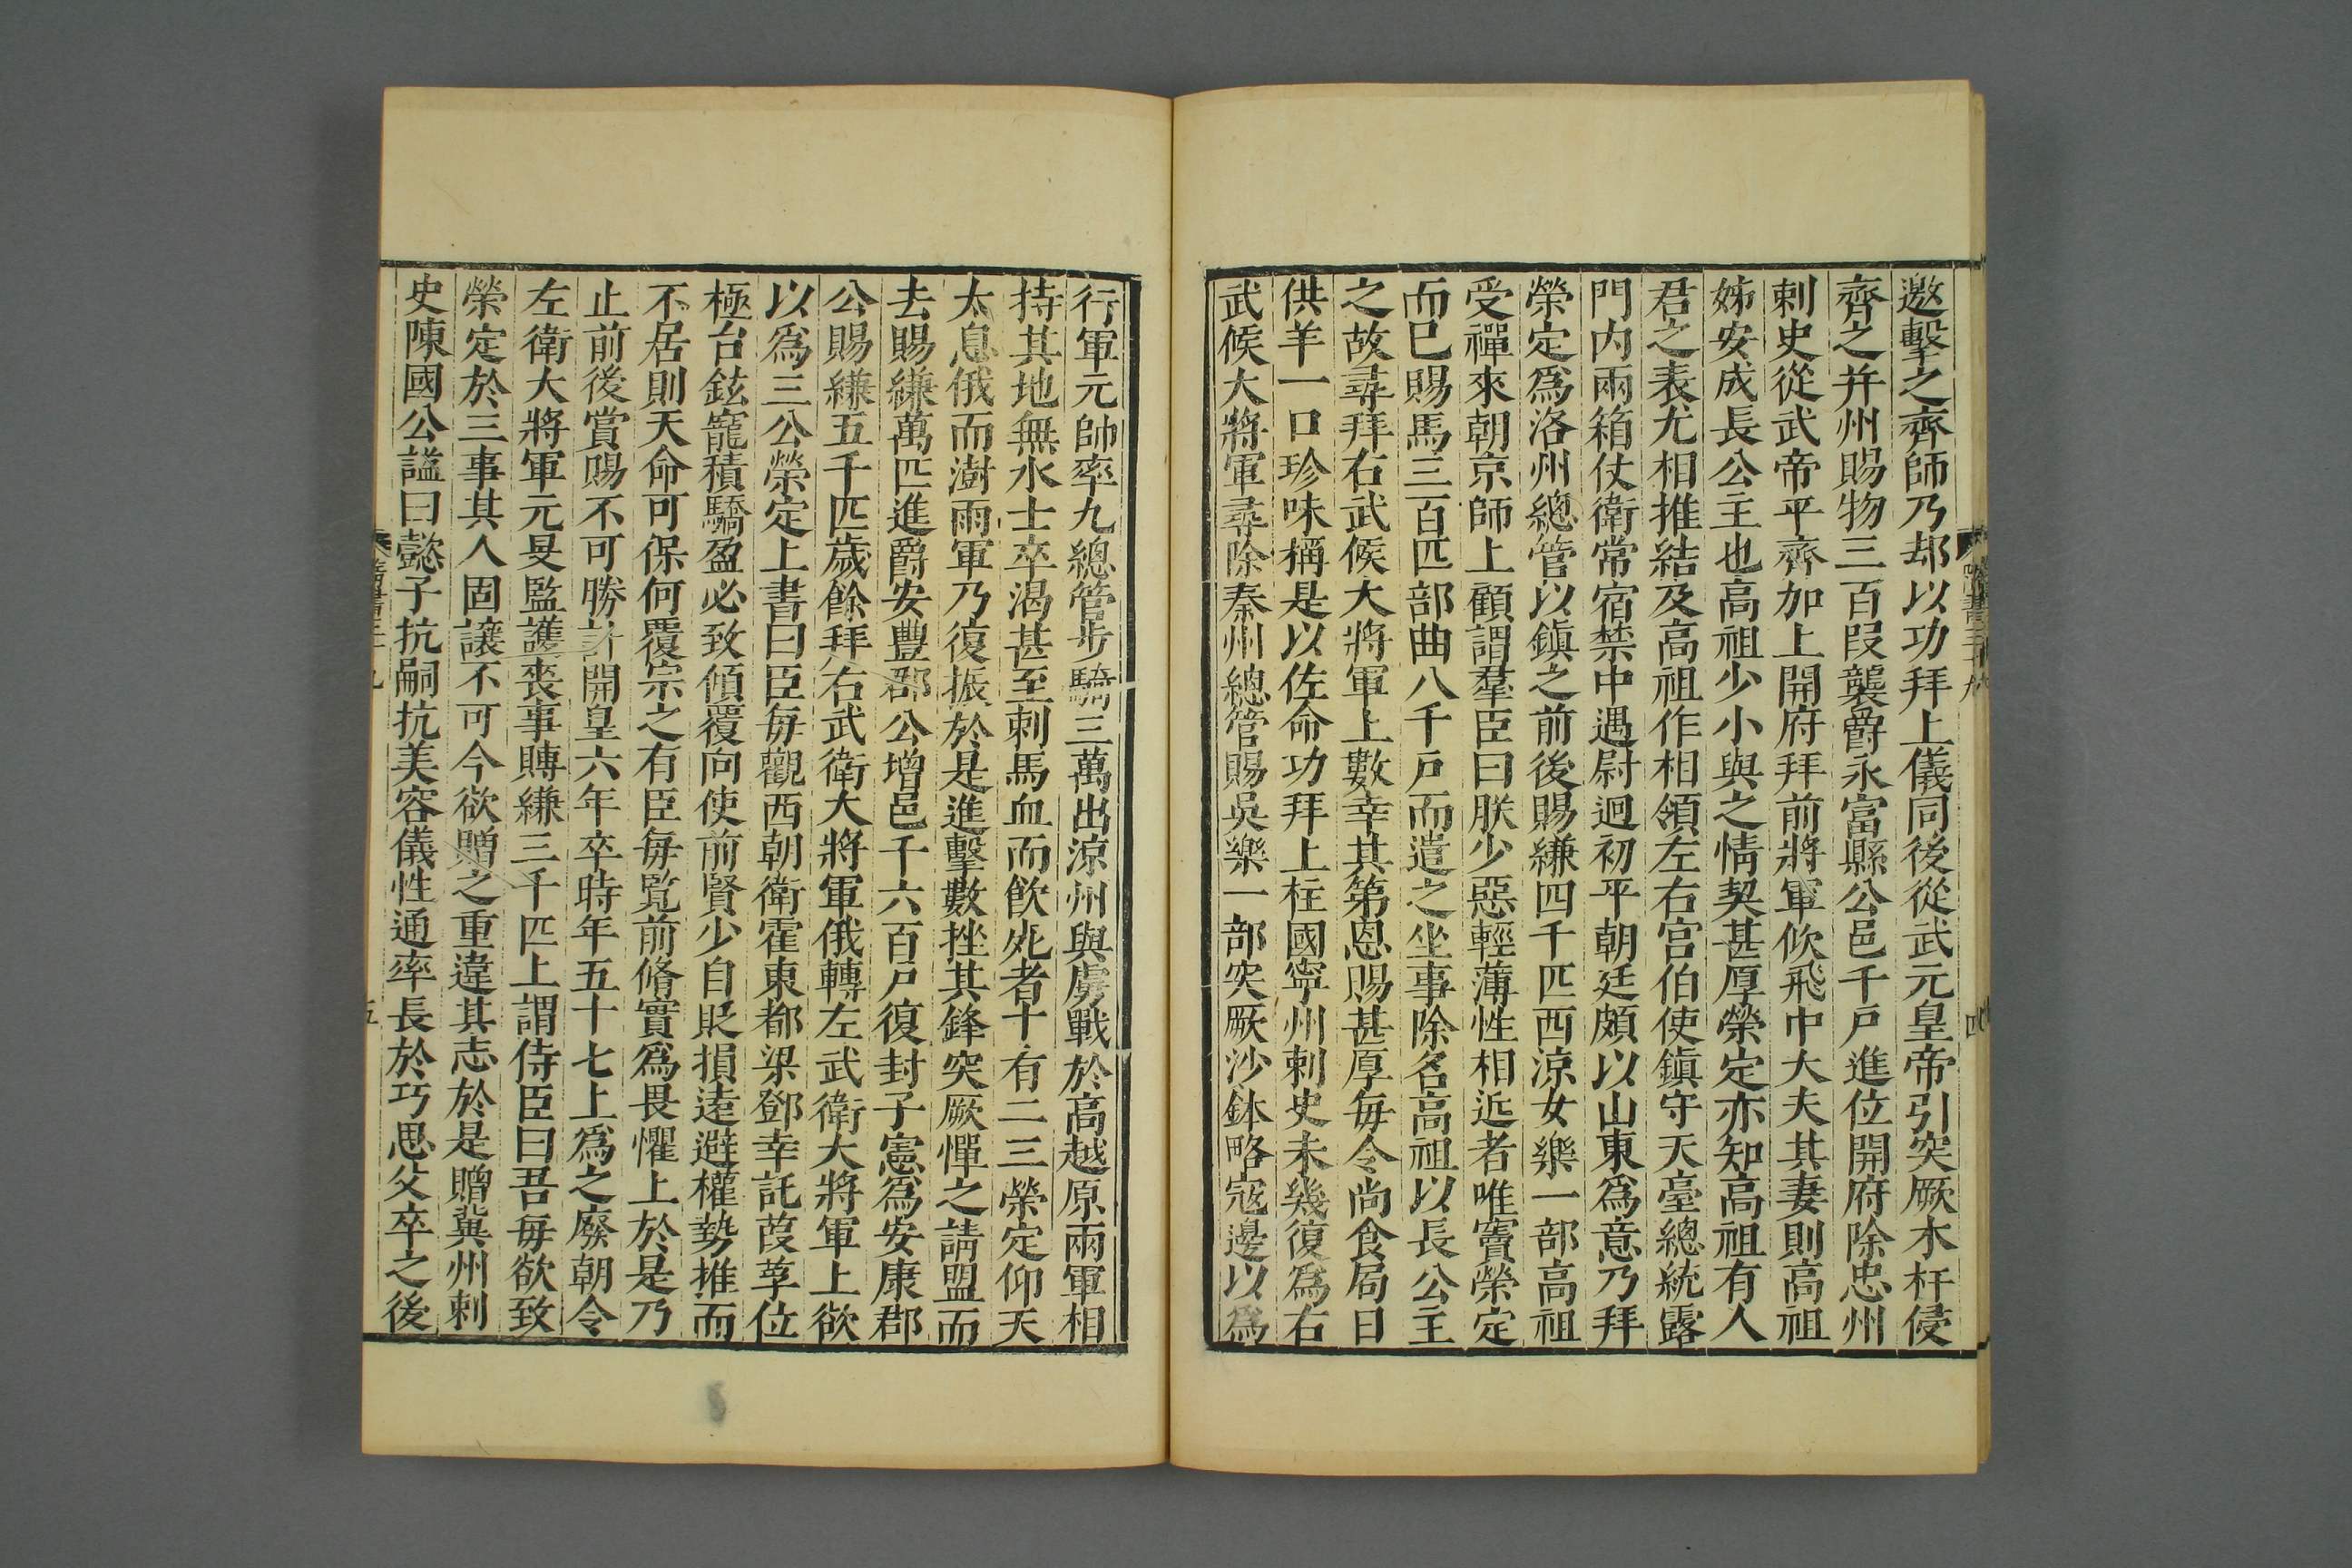 邀擊之齊師乃却以功拜上儀同後從武元皇帝引突厥木杆侵
齊之并州賜物三百段襲爵永富縣公邑千戸進位開府除忠州
刺史從武帝平齊加上開府拜前將軍佽飛中大夫其妻則高祖
姊安成長公主也高祖少小與之情契甚厚榮定亦知高祖有人
君之表尤相推結及高祖作相領左右宫伯使鎮守天臺總統露
門内兩箱仗衛常宿禁中遇尉迥初平朝廷頗以山東爲意乃拜
榮定爲洛州總管以鎮之前後賜縑四千匹西涼女樂一部高祖
受禪來朝京師上顧謂羣臣曰朕少惡輕薄性相近者唯竇榮定
而已賜馬三百匹部曲八千戸而遣之坐事除名高祖以長公主
之故尋拜右武候大將軍上數幸其第恩賜甚厚每令尚食局日
供羊一口珍味稱是以佐命功拜上柱國寧州刺史未幾復爲右
武候大將軍尋除秦州總管賜吳樂一部突厥沙鉢略寇邊以爲
四
行軍元帥率九總管步騎三萬出涼州與虜戰於高越原兩軍相
持其地無水士卒渴甚至刺馬血而飲死者十有二三榮定仰天
太息俄而澍雨軍乃復振於是進擊數挫其鋒突厥憚之請盟而
去賜縑萬匹進爵安豐郡公增邑千六百戸復封子憲爲安康郡
公賜縑五千匹歲餘拜右武衛大將軍俄轉左武衛大將軍上欲
以爲三公榮定上書曰臣每觀西朝衛霍東都梁鄧幸託葭莩位
極台鉉寵積驕盈必致傾覆向使前賢少自貶損遠避權勢推而
不居則天命可保何覆宗之有臣每覧前脩實爲畏懼上於是乃
止前後賞賜不可勝計開皇六年卒時年五十七上爲之廢朝令
左衛大將軍元旻監護喪事賻縑三千匹上謂侍臣曰吾每欲致
榮定於三事其人固讓不可今欲贈之重違其志於是贈冀州刺
史陳國公謚曰懿子抗嗣抗美容儀性通率長於巧思父卒之後
五